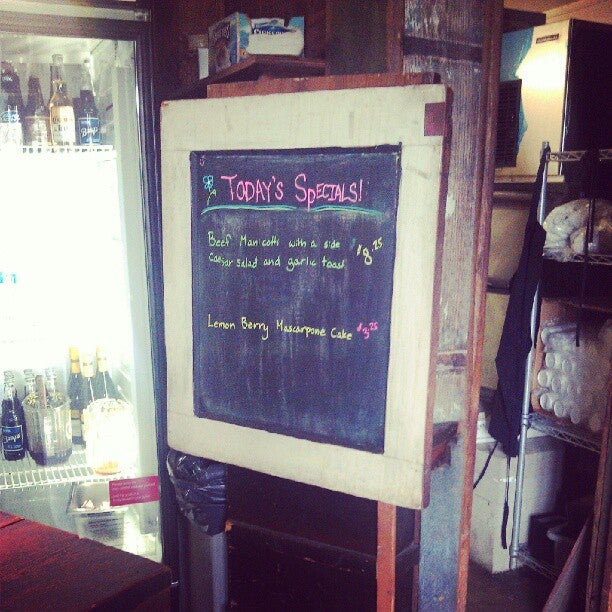 TODAY'S SPECIALS!
Beef Manicotti with a side $8.25
Caesar salad and garlic toast
Lemon Berry Mascarpone Cake $3.25